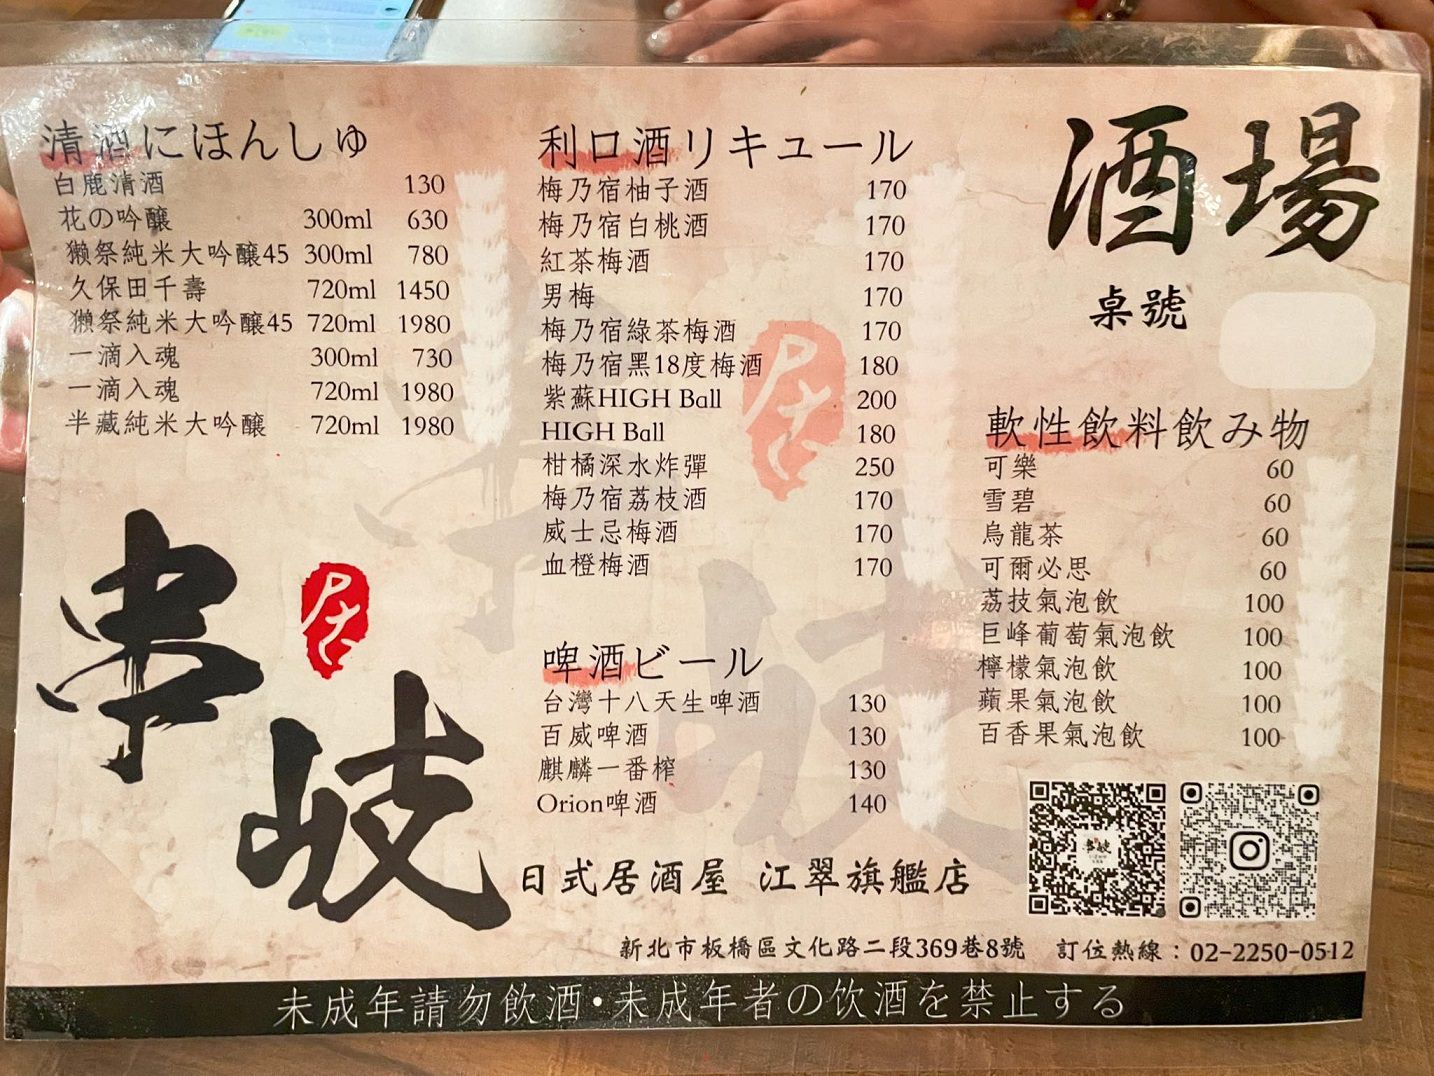 清酒にほんしゅ
白鹿清酒 130
花の吟醸 300ml 630
獺祭純米大吟醸45 300ml 780
久保田千壽 720ml 1450
獺祭純米大吟醸45 720ml 1980
一滴入魂 300ml 730
一滴入魂 720ml 1980
半藏純米大吟醸 720ml 1980
串岐
居
利口酒リキュール
梅乃宿柚子酒 170
梅乃宿白桃酒 170
紅茶梅酒 170
男梅 170
梅乃宿綠茶梅酒 170
梅乃宿黑18度梅酒 180
紫蘇HIGH Ball 200
HIGH Ball 180
柑橘深水炸彈 250
梅乃宿荔枝酒 170
威士忌梅酒 170
血橙梅酒 170
啤酒ビール
台灣十八天生啤酒 130
百威啤酒 130
麒麟一番榨 130
Orion啤酒 140
酒場
桌號
軟性飲料飲み物
可樂 60
雪碧 60
烏龍茶 60
可爾必思 60
荔技氣泡飲 100
巨峰葡萄氣泡飲 100
檸檬氣泡飲 100
蘋果氣泡飲 100
百香果氣泡飲 100
日式居酒屋 江翠旗艦店
新北市板橋區文化路二段369巷8號 訂位熱線：02-2250-0512
未成年請勿飲酒・未成年者の饮酒を禁止する